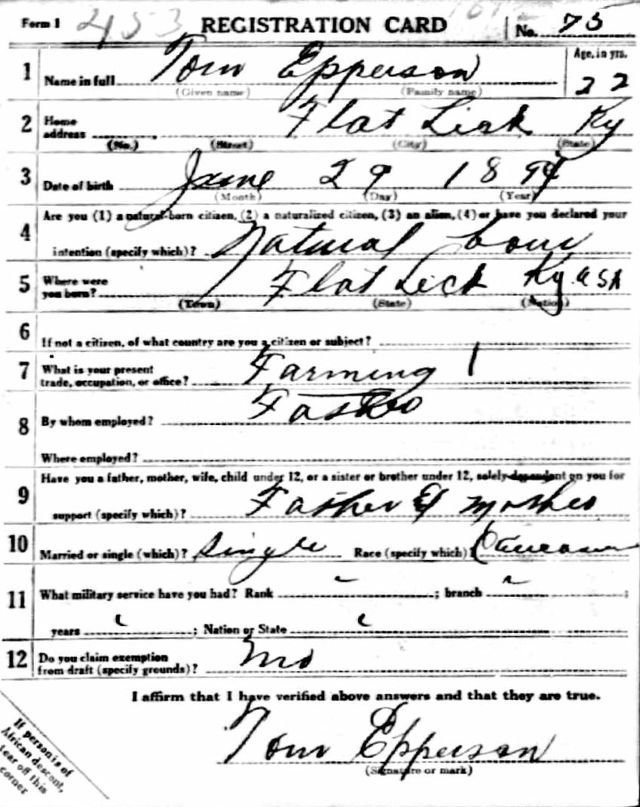 Form 1 453 REGISTRATION CARD No. 75
1 Name in full Tom Epperson Age, in yrs. 22
(Given name) (Family name)
2 Home address Flat Lick Ky
(No.) (Street) (City) (State)
3 Date of birth June 29 1894
(Month) (Day) (Year)
4 Are you (1) a natural-born citizen, (2) a naturalized citizen, (3) an alien, (4) or have you declared your
intention (specify which)? Natural born
5 Where were you born? Flat Lick Ky USA
(Town) (State) (Nation)
6 If not a citizen, of what country are you a citizen or subject?
7 What is your present trade, occupation, or office? Farming 1
8 By whom employed? Father
Where employed?
9 Have you a father, mother, wife, child under 12, or a sister or brother under 12, solely dependent on you for
support (specify which)? Father & mother
10 Married or single (which)? Single Race (specify which)? Caucasian
11 What military service have you had? Rank ; branch
years ; Nation or State
12 Do you claim exemption from draft (specify grounds)? No
I affirm that I have verified above answers and that they are true.
Tom Epperson
(Signature or mark)
If person is of
African descent,
tear off this
corner